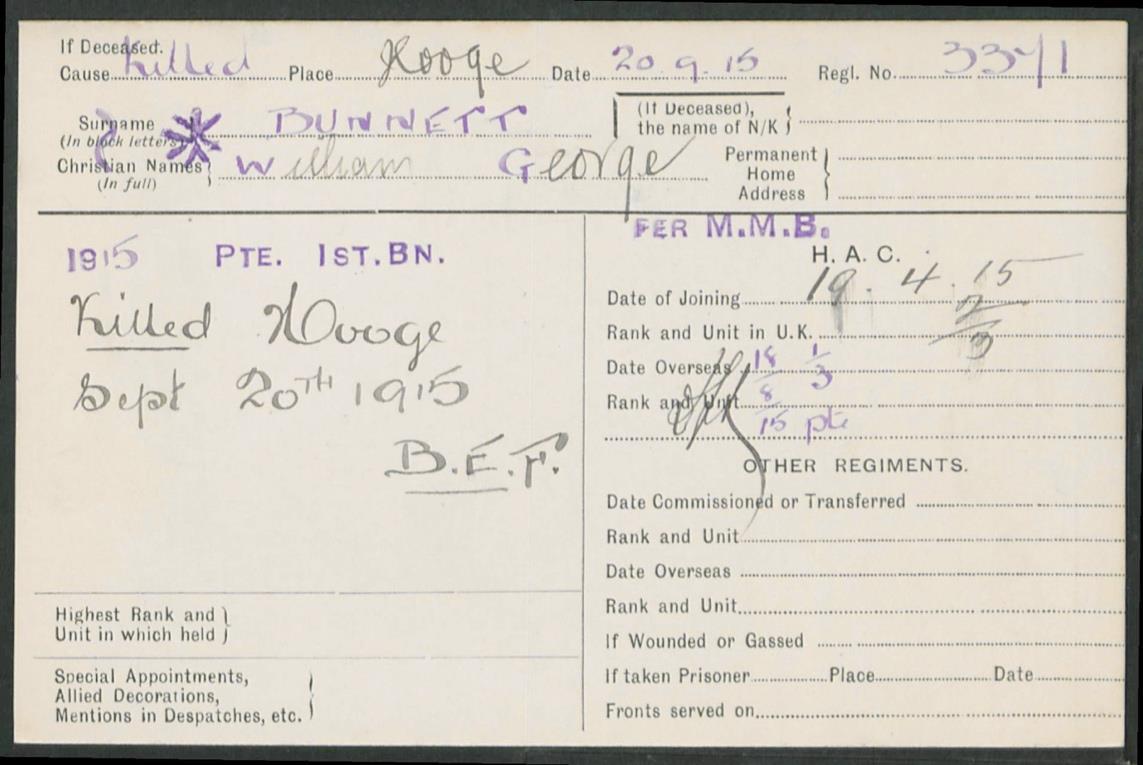 If Deceased.
Cause Killed Place Hooge Date 20.9.15 Regl. No.
Surname (In block letters) BUNNETT (If Deceased), the name of N/K
Christian Names (In full) William George Permanent Home Address
1915 PTE. 1ST. BN.
Killed Hooge
Sept 20TH 1915
B.E.F.
Highest Rank and
Unit in which held
Special Appointments,
Allied Decorations,
Mentions in Despatches, etc.
PER M.M.B.
H. A. C.
Date of Joining 19. 4. 15
Rank and Unit in U.K. 2/3
Date Overseas 18/8/15 1/3
Rank and Unit pte
OTHER REGIMENTS.
Date Commissioned or Transferred
Rank and Unit
Date Overseas
Rank and Unit
If Wounded or Gassed
If taken Prisoner Place Date
Fronts served on